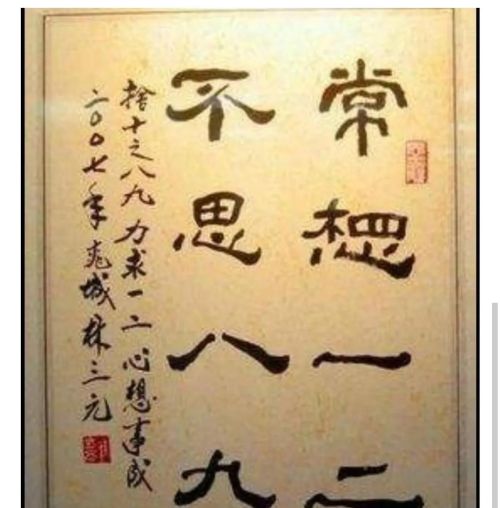 常想一二
不思八九
捨十之八九力求一二心想事成
二00七年 城林三元